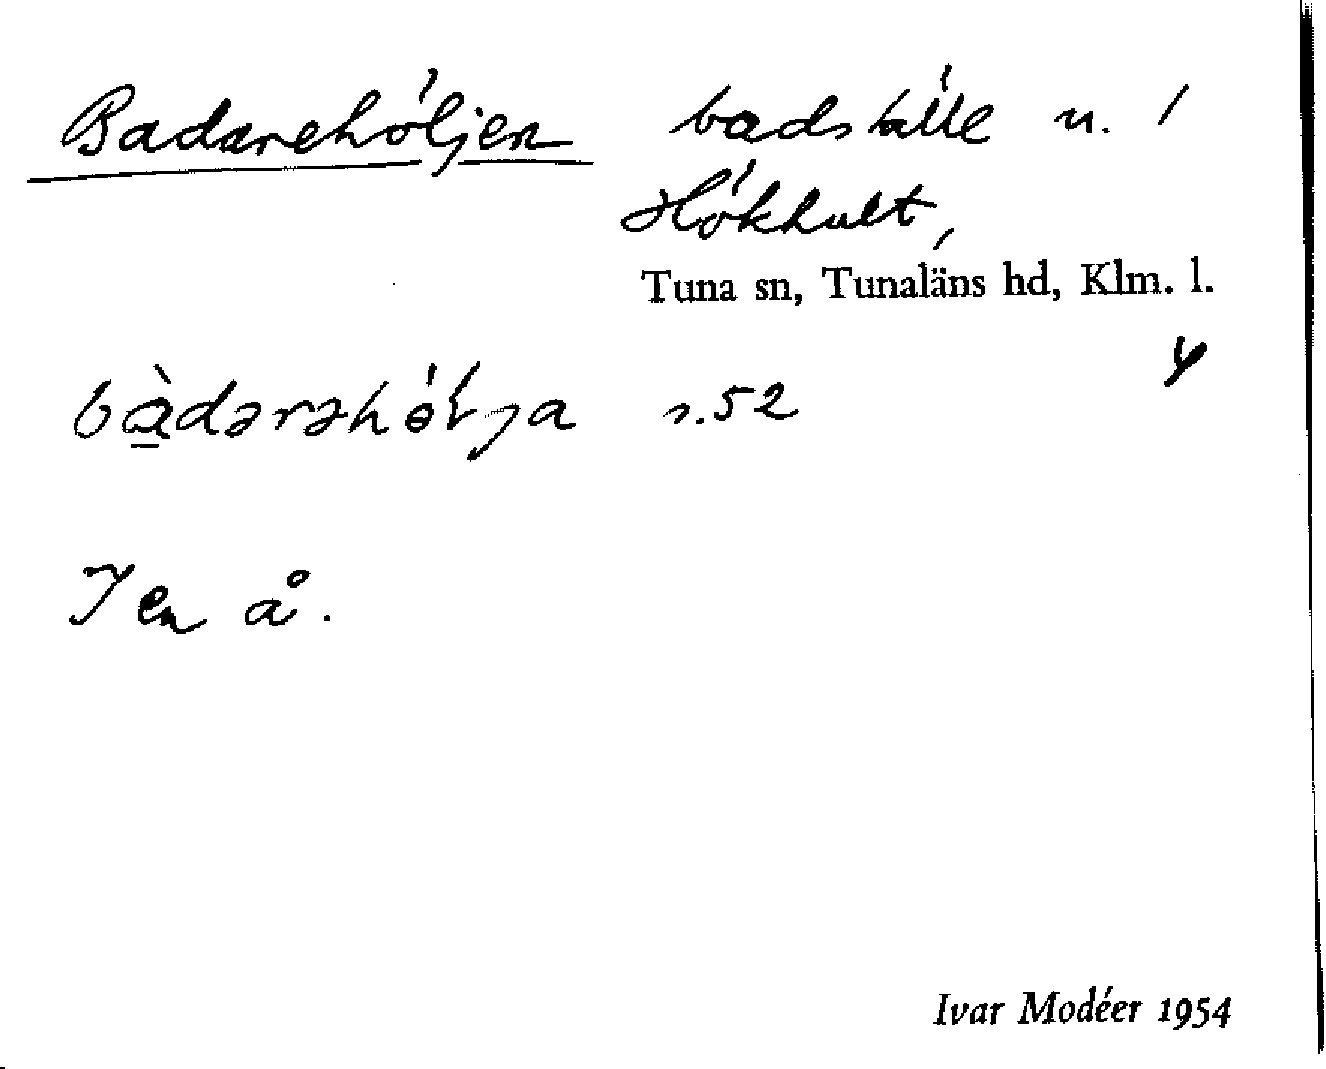 Badarehöljen badställe u. /
Hökhult,
Tuna sn, Tunaläns hd, Klm. l.
s. 52
I en å.
Ivar Modéer 1954